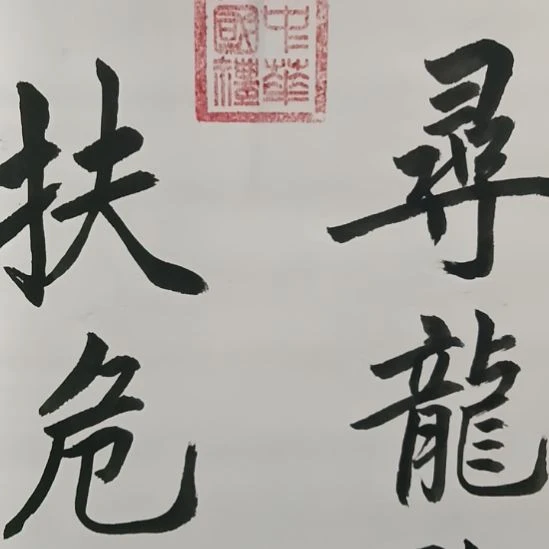 尋龍
扶危
中華國禮